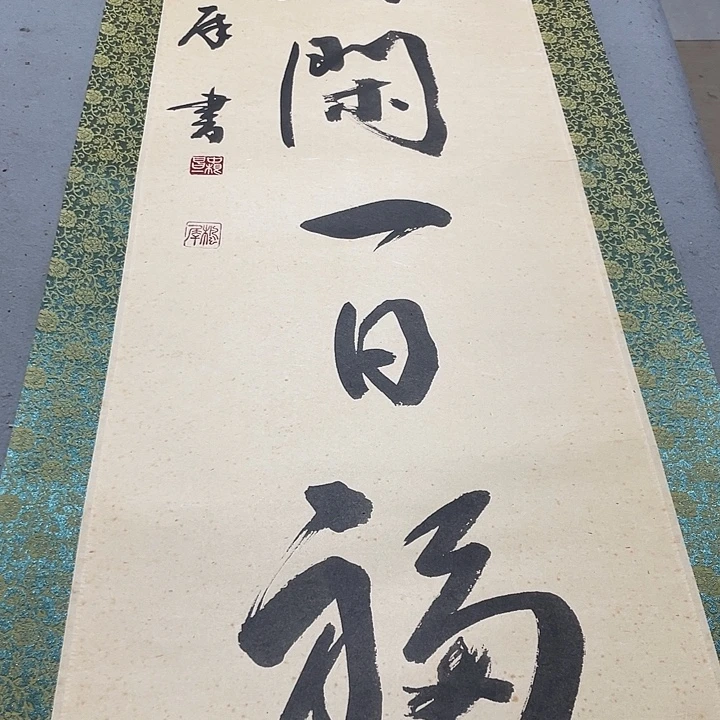 閑一日福
書